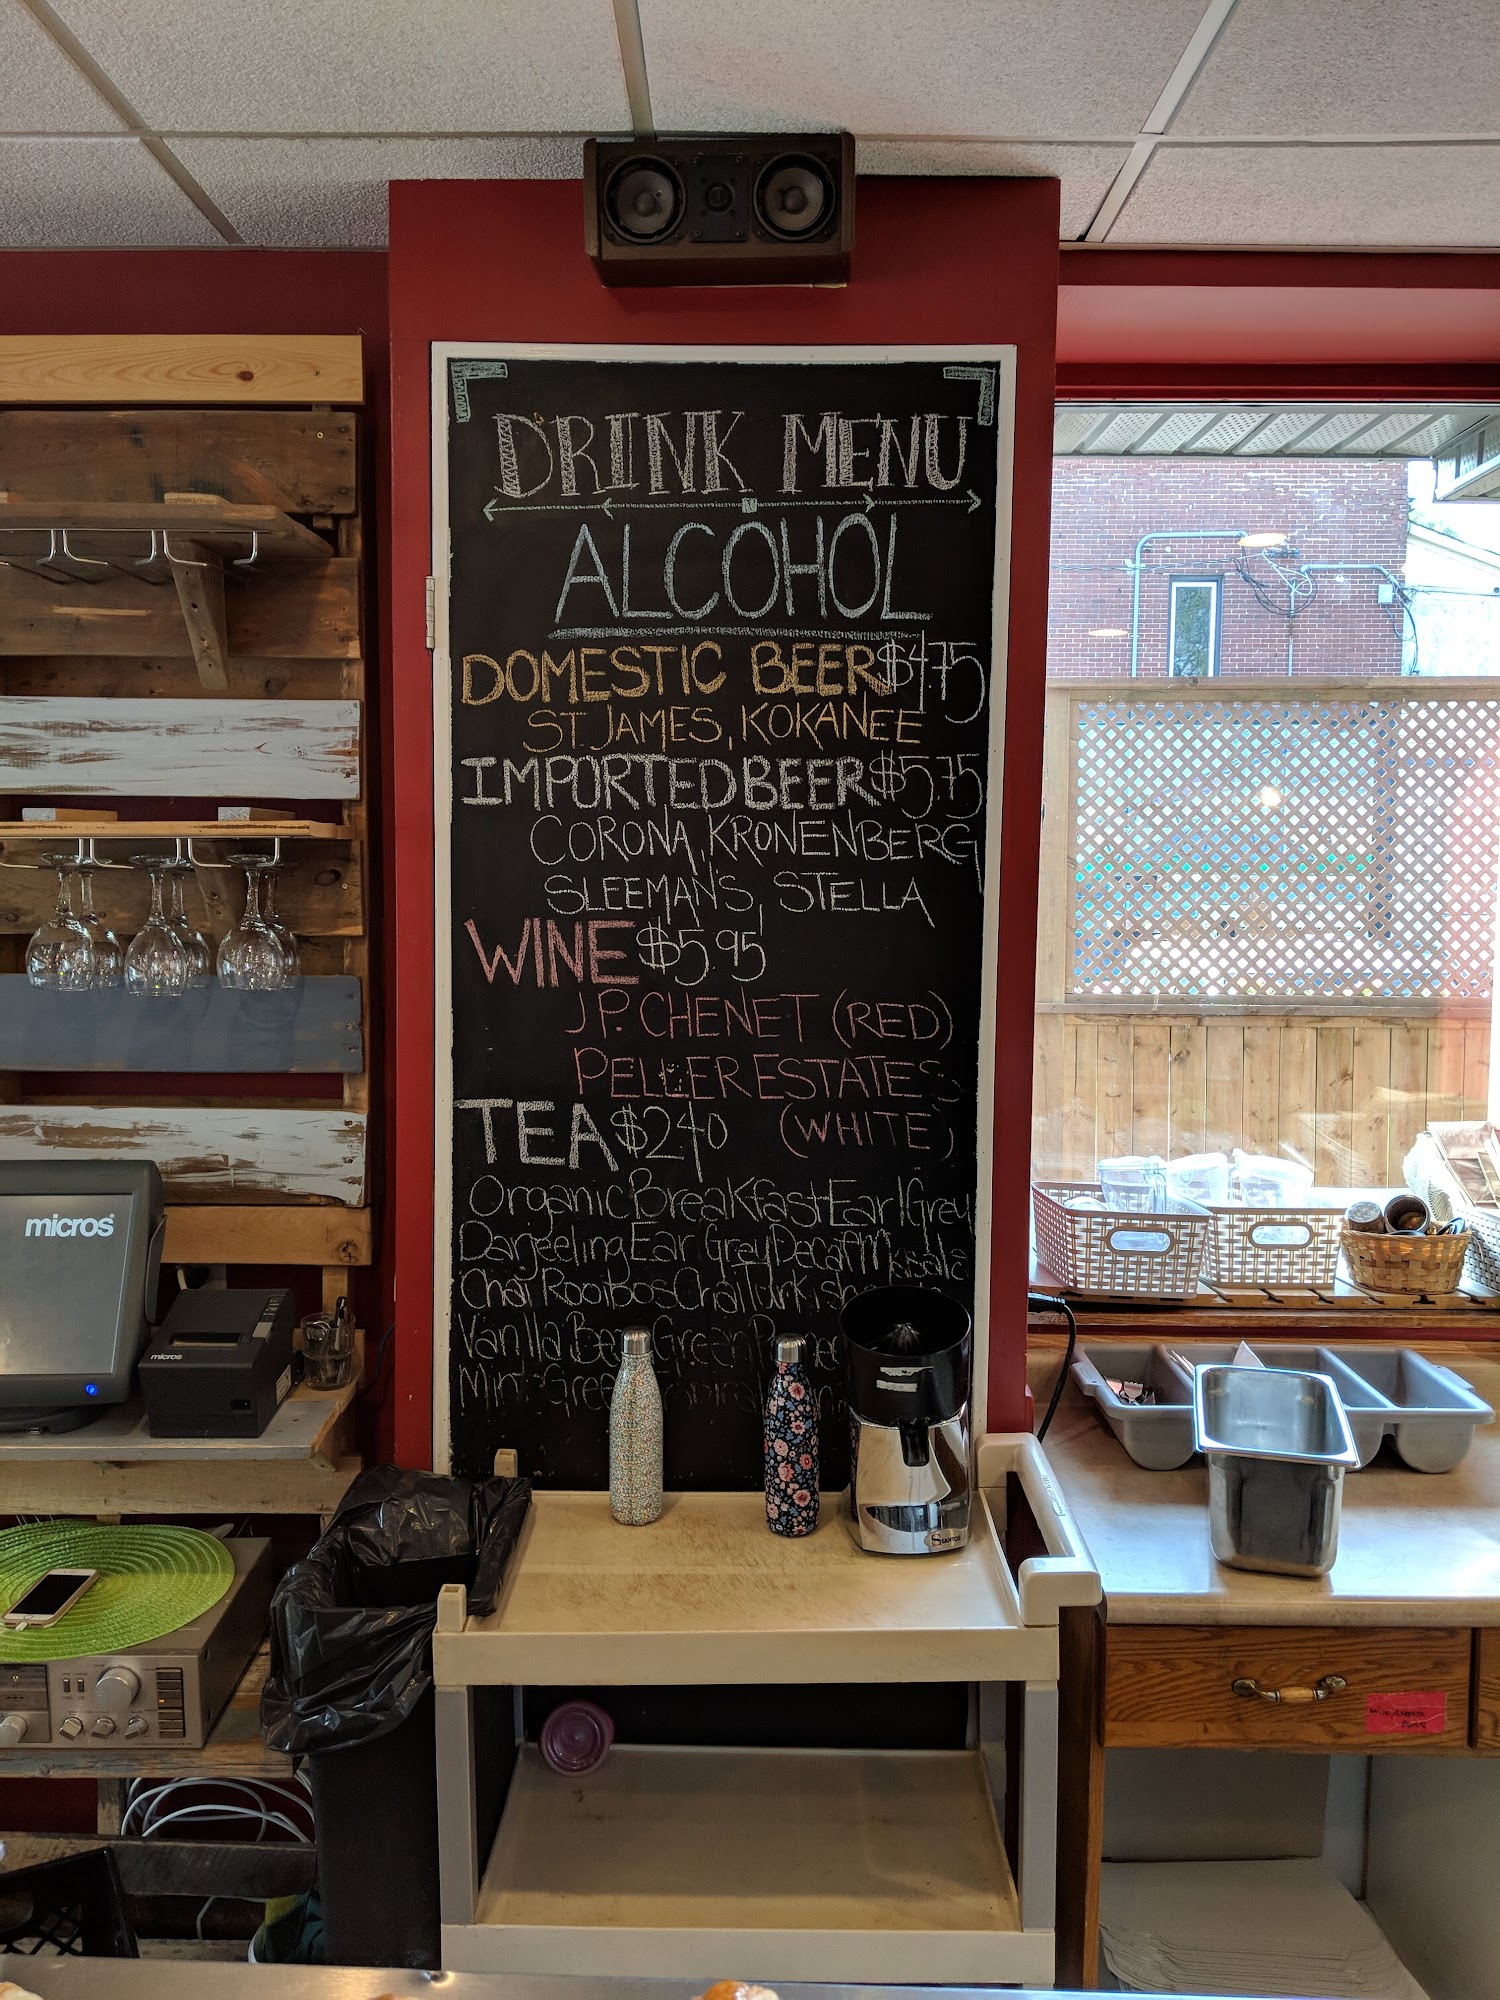 DRINK MENU
ALCOHOL
DOMESTIC BEER $4.75
ST. JAMES, KOKANEE
IMPORTED BEER $5.75
CORONA, KRONENBERG
SLEEMAN'S, STELLA
WINE $5.95
J.P. CHENET (RED)
PELLER ESTATES
TEA $2.40 (WHITE)
Organic Breakfast Earl Grey
Darjeeling Earl Grey Decaf Masala
Chai Rooibos Chai Turkish
Vanilla Green
Mint Green
micros
micros
SANTOS